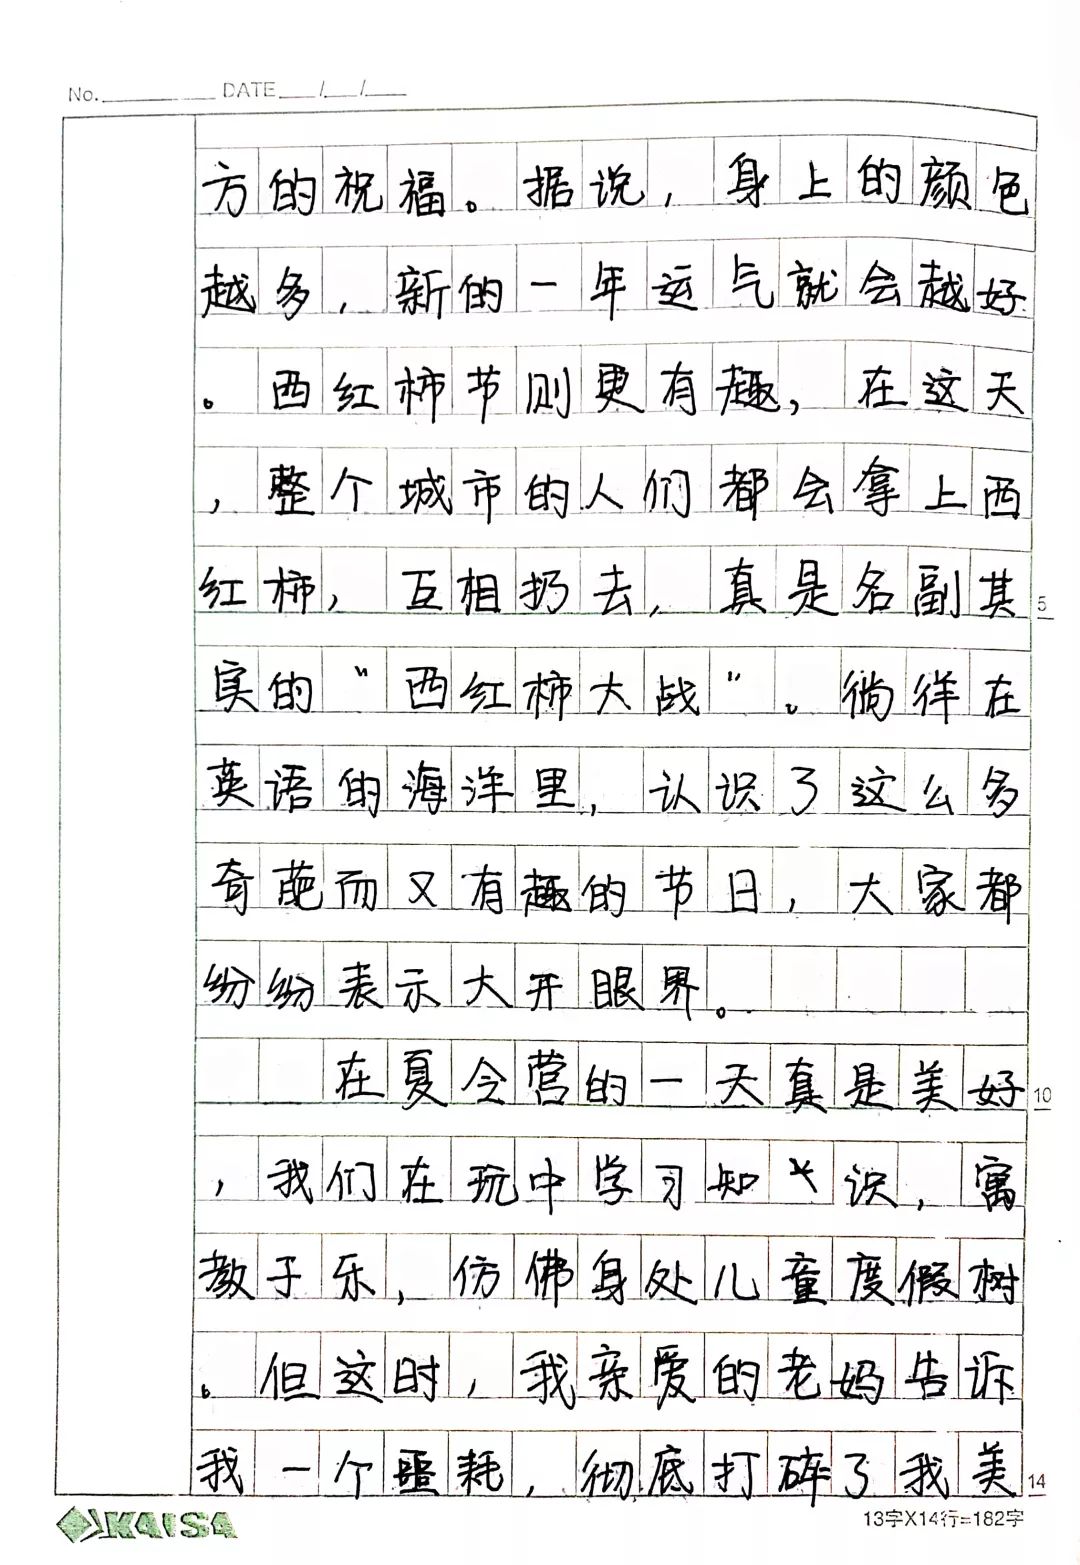 No. DATE / /
方的祝福。据说，身上的颜色
越多，新的一年运气就会越好
。西红柿节则更有趣，在这天
，整个城市的人们都会拿上西
红柿，互相扔去，真是名副其
5
实的“西红柿大战”。徜徉在
英语的海洋里，认识了这么多
奇葩而又有趣的节日，大家都
纷纷表示大开眼界。
在夏令营的一天真是美好
10
，我们在玩中学习知识，寓
教于乐，仿佛身处儿童度假树
。但这时，我亲爱的老妈告诉
我一个噩耗，彻底打碎了我美
14
KAISA
13字X14行=182字